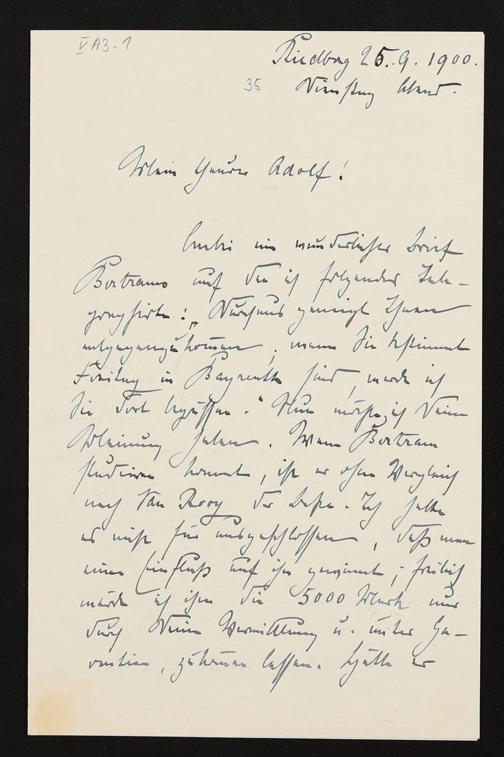 V A3-1
Riedberg 25.9.1900.
35
Dienstag Abend.
Mein theurer Adolf!
Anbei ein wunderlicher Brief
Bertrams auf den ich folgendes tele-
graphirte: „Durchaus geneigt Ihnen
entgegenzukommen, wenn Sie bestimmt
Freitag in Bayreuth sind, werde ich
Sie dort begrüssen." Nun möchte ich Deine
Meinung haben. Wenn Bertram
studieren kommt, ist er ohne Vergleich
nach Van Rooy der Beste. Ich halte
es nicht für ausgeschlossen, daß man
einen Einfluß auf ihn gewinnt; freilich
würde ich ihm die 5000 Mark nur
durch Deine Vermittlung u. unter Ga-
rantien, zukommen lassen. Hätte er